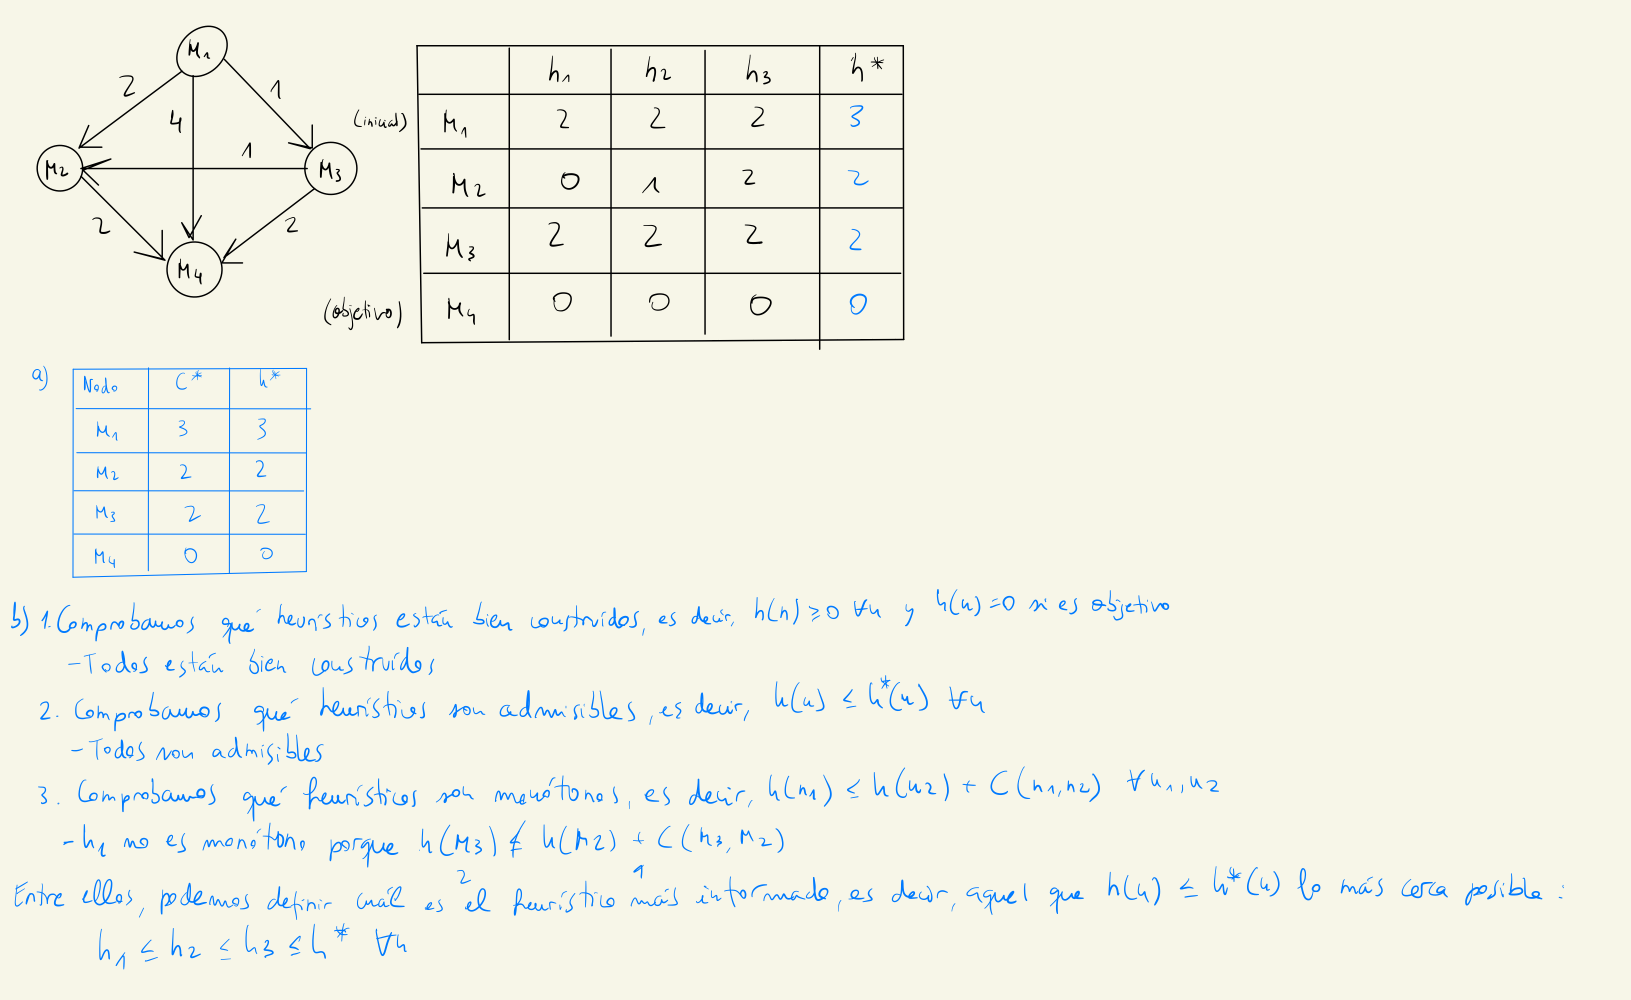 M1
2
4
1
M2
1
M3
2
2
M4
h1 h2 h3 h*
(inicial) M1 2 2 2 3
M2 0 1 2 2
M3 2 2 2 2
(objetivo) M4 0 0 0 0
a)
Nodo C* h*
M1 3 3
M2 2 2
M3 2 2
M4 0 0
b) 1. Comprobamos qué heurísticos están bien construídos, es decir, h(n) ≥ 0 ∀n y h(n) = 0 si es objetivo
- Todos están bien construídos
2. Comprobamos qué heurísticos son admisibles, es decir, h(n) ≤ h*(n) ∀n
- Todos son admisibles
3. Comprobamos qué heurísticos son monótonos, es decir, h(n1) ≤ h(n2) + C(n1,n2) ∀n1,n2
- h1 no es monótono porque h(M3) ≰ h(M2) + C(M3,M2)
2 1
Entre ellos, podemos definir cuál es el heurístico más informado, es decir, aquel que h(n) ≤ h*(n) lo más cerca posible:
h1 ≤ h2 ≤ h3 ≤ h* ∀n